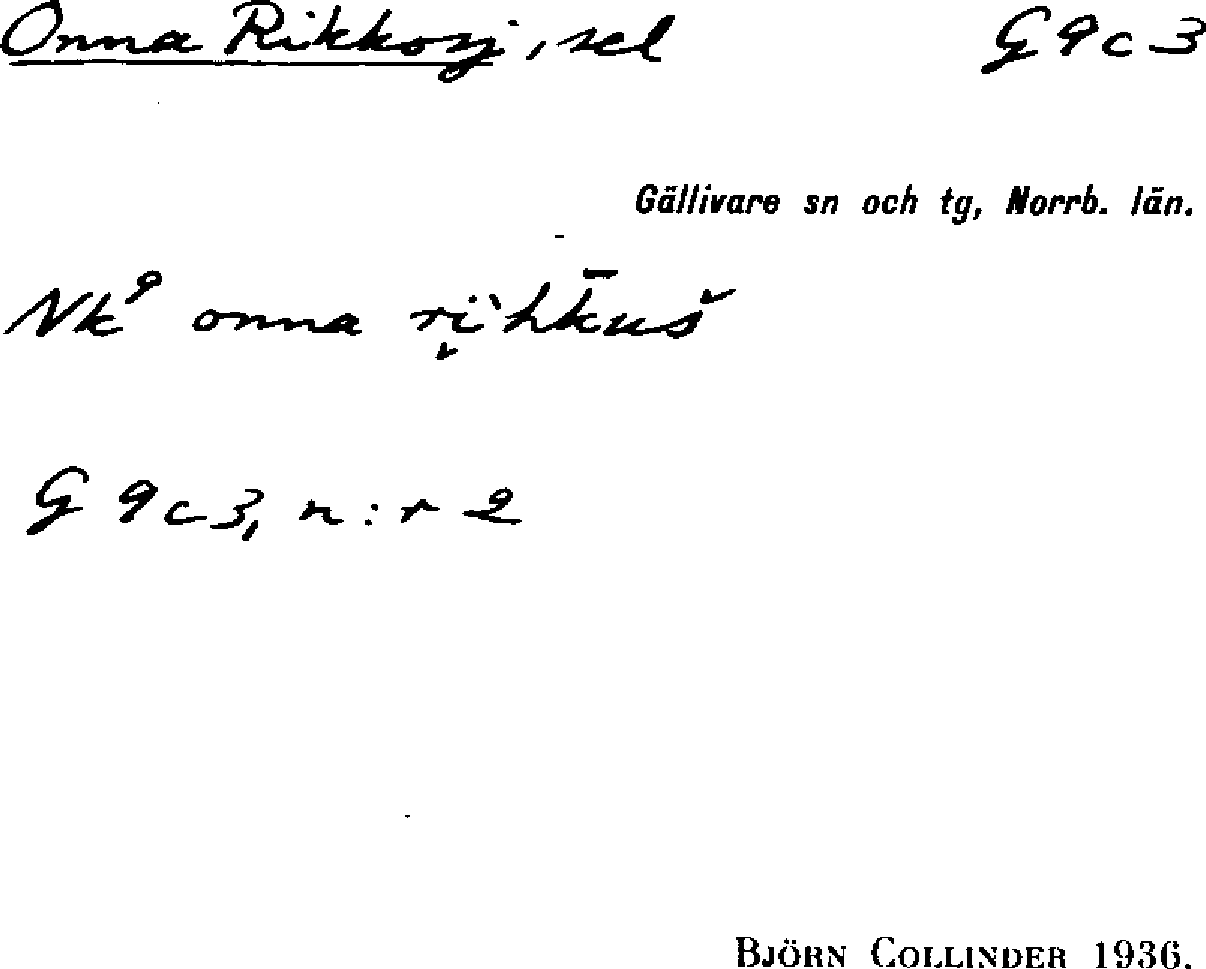 Onna Rikkosj, sel G 9 c 3
Gällivare sn och tg, Norrb. län.
Nk⁹ onna ri̬ˋhk̄uš
G 9 c 3, n:r 2
BJÖRN COLLINDER 1936.